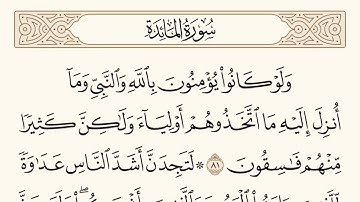 سُورَةُ المَائِدَةِ
وَلَوْ كَانُوا۟ يُؤْمِنُونَ بِٱللَّهِ وَٱلنَّبِىِّ وَمَآ
أُنزِلَ إِلَيْهِ مَا ٱتَّخَذُوهُمْ أَوْلِيَآءَ وَلَـٰكِنَّ كَثِيرًا
مِّنْهُمْ فَـٰسِقُونَ ٨١ ۞ لَتَجِدَنَّ أَشَدَّ ٱلنَّاسِ عَدَٰوَةً